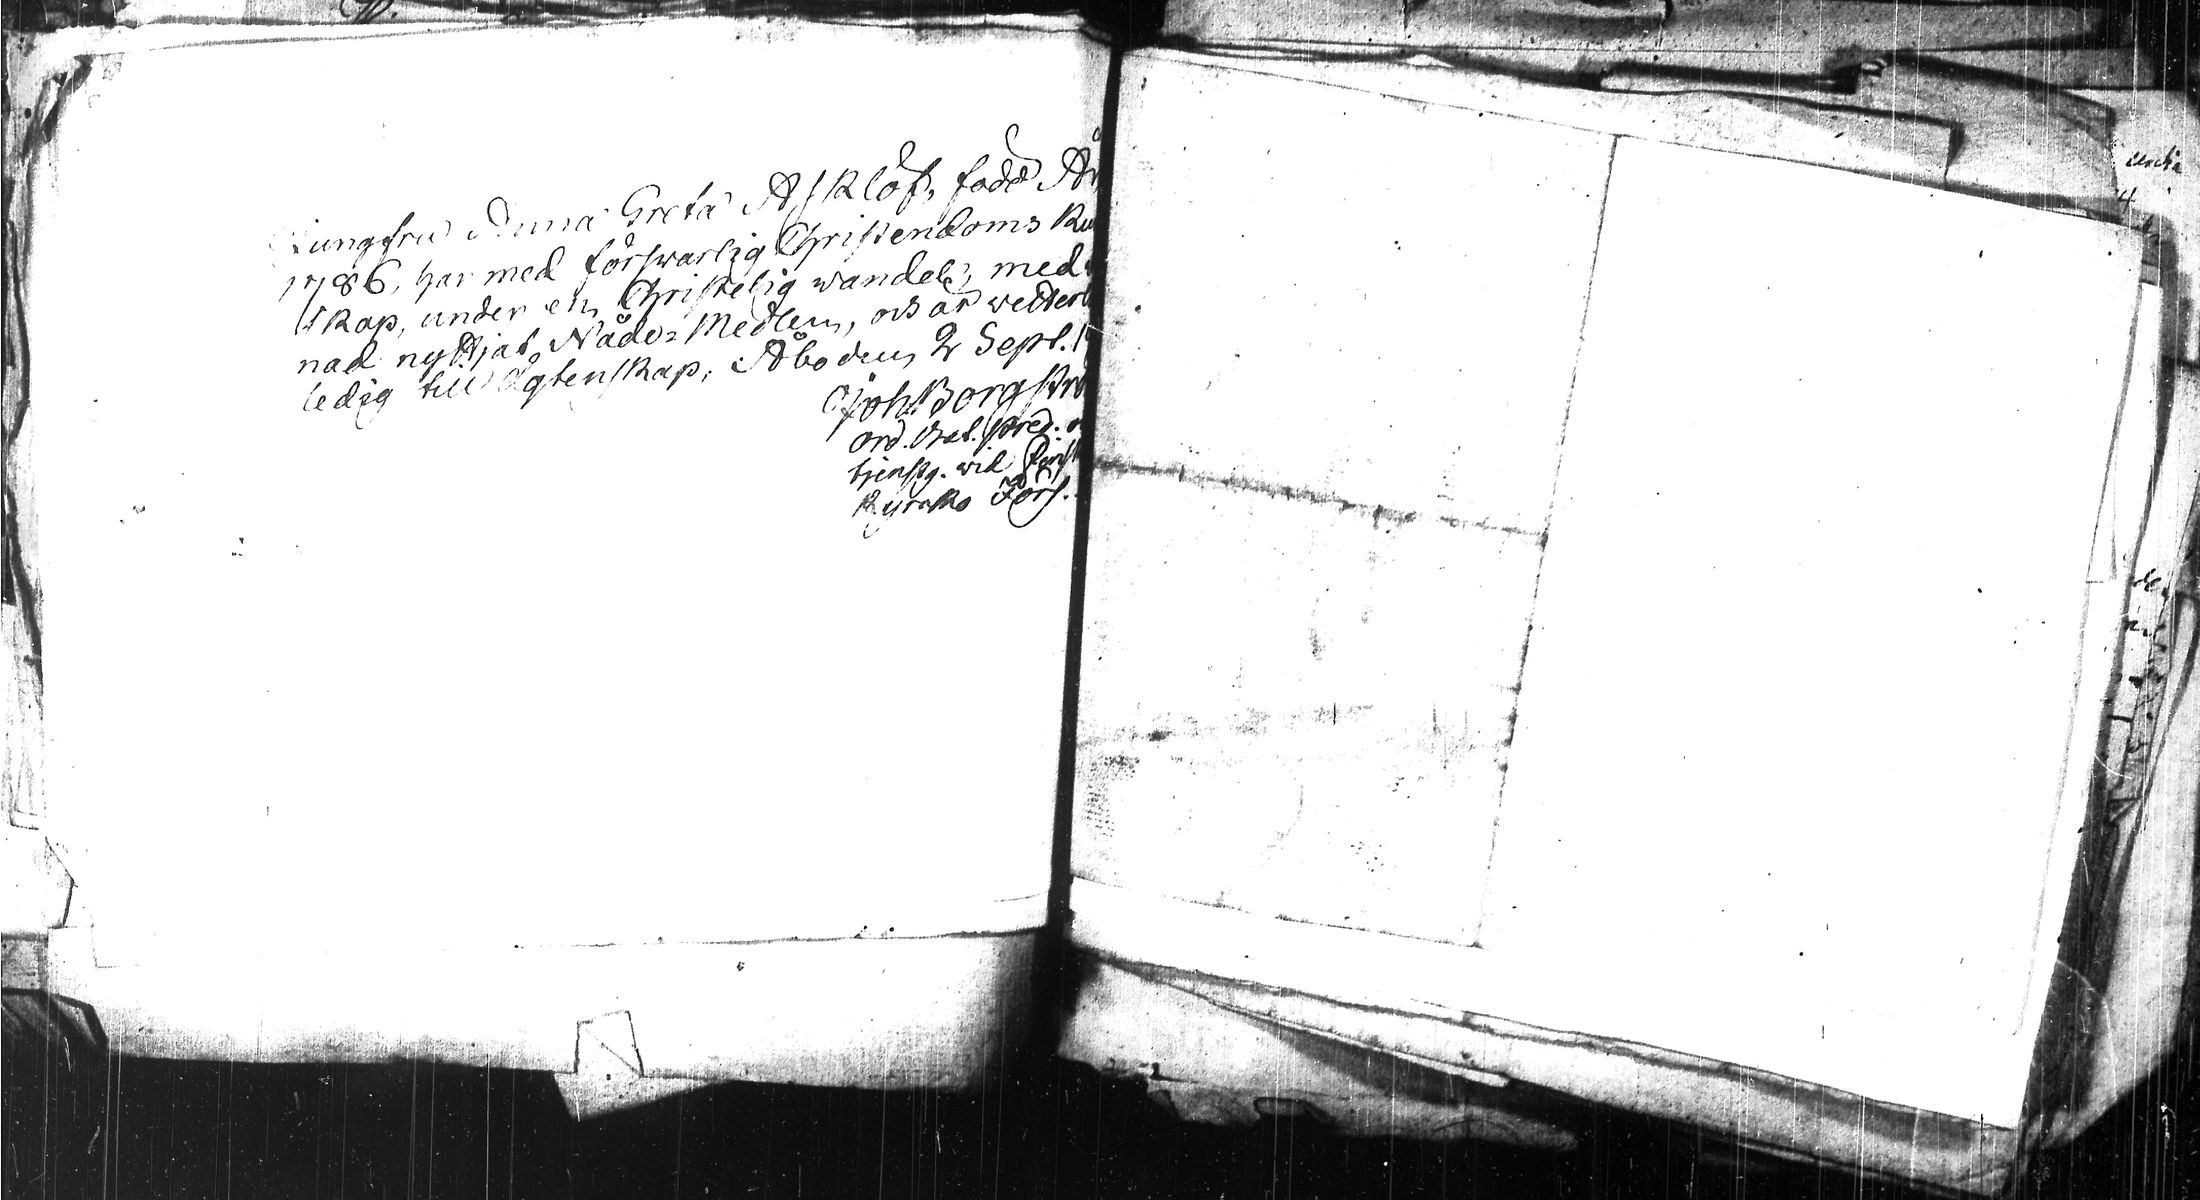 Jungfru Anna Greta Asklöf, född År
1786, har med förswarlig Christendoms Kun
skap, under en Christelig wandel, med
nad nyttjat Nådes Medlen, och är
ledig till ägtenskap, Åbo den 2 Sept.
Joh Borgstr
ord. Bat. Pred.
tjenstg. wid Finsk
Kyrko Förs.